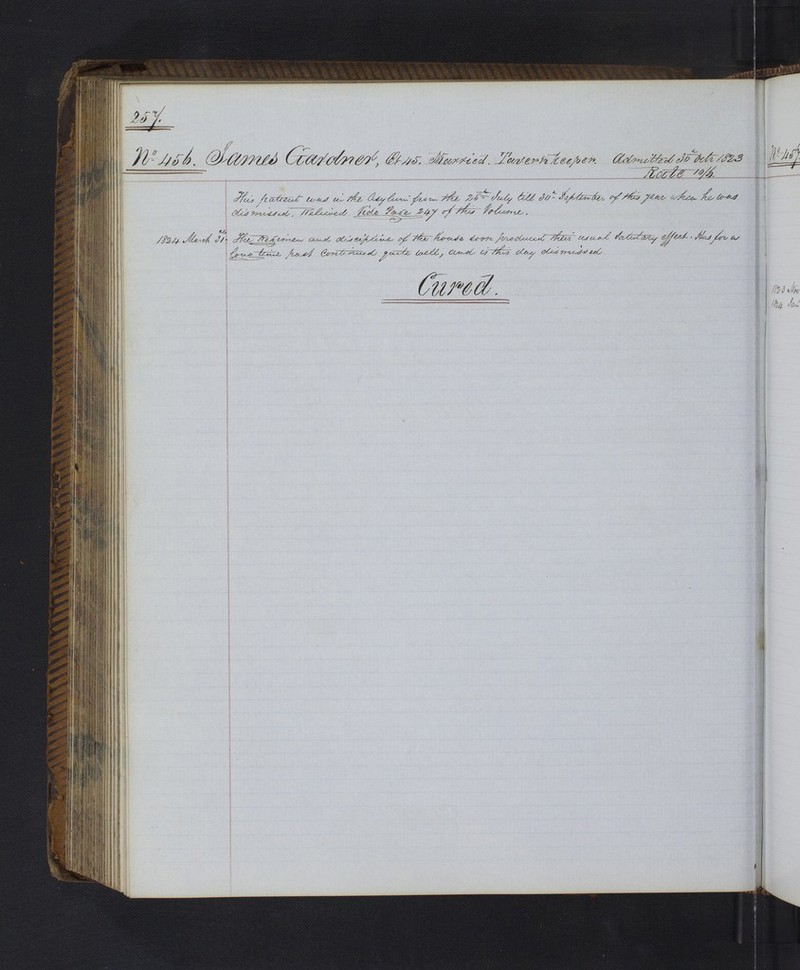 257.
No. 456. James Gardner, Æt 45. Married. Tavernkeeper. Admitted 30th Octr 1823
Rate 10/6
This patient was in the Asylum from the July till 30th September of this year when he was
dismissed, Relieved. Vide Page 247 of this Volume.
1824 March 31st. The Regimen and discipline of the house soon produced their usual Salutary effect. Has for a
long time past Continued quite well, and is this day dismissed
Cured.
No. 457
1823 Nov
1824 Jan